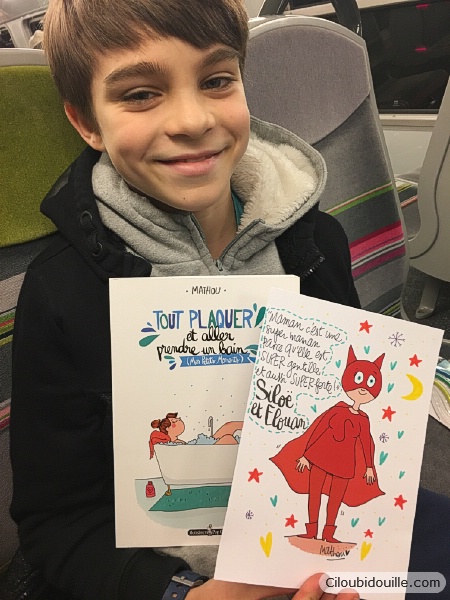 · MATHOU ·
TOUT PLAQUER
et aller
prendre un bain
Maman c'est une
super maman
parce qu'elle est
SUPER gentille
et aussi SUPER forte!
Siloé
et Elouan
Mathou
Ciloubidouille.com